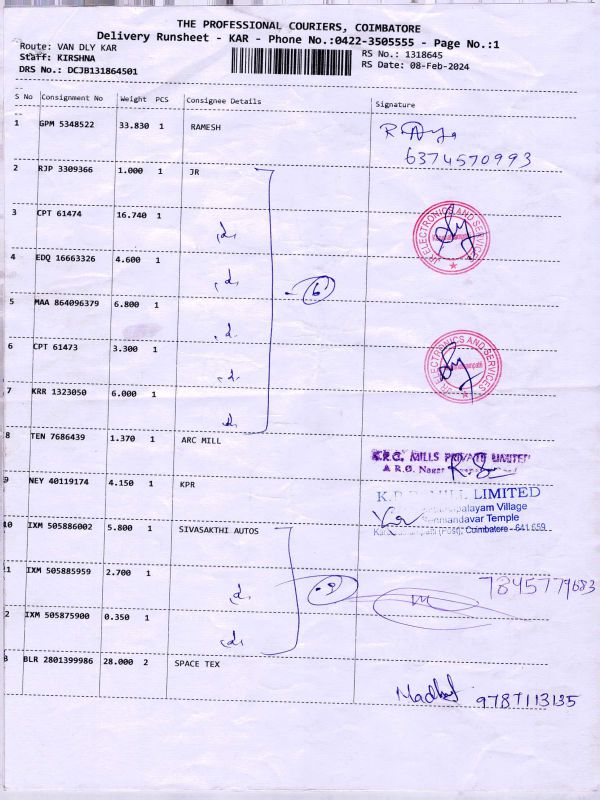 THE PROFESSIONAL COURIERS, COIMBATORE
Delivery Runsheet - KAR - Phone No.:0422-3505555 - Page No.:1
Route: VAN DLY KAR
RS No.: 1318645
Staff: KIRSHNA
RS Date: 08-Feb-2024
DRS No.: DCJB131864501
S No Consignment No Weight PCS Consignee Details Signature
1 GPM 5348522 33.830 1 RAMESH
6374570993
2 RJP 3309366 1.000 1 JR
3 CPT 61474 16.740 1 "d"
ELECTRONICS AND SERVICES
4 EDQ 16663326 4.600 1 "d"
6
5 MAA 864096379 6.800 1 "d"
6 CPT 61473 3.300 1 "d"
ELECTRONICS AND SERVICES
7 KRR 1323050 6.000 1 d
8 TEN 7686439 1.370 1 ARC MILL
K.R.G. MILLS PRIVATE LIMITED
9 NEY 40119174 4.150 1 KPR
MILL LIMITED
palayam Village
Temple
(Post), Coimbatore - 641 659
10 IXM 505886002 5.800 1 SIVASAKTHI AUTOS
1 IXM 505885959 2.700 1 d
7845779683
2 IXM 505875900 0.350 1 "d"
3 BLR 2801399986 28.000 2 SPACE TEX
9787113135